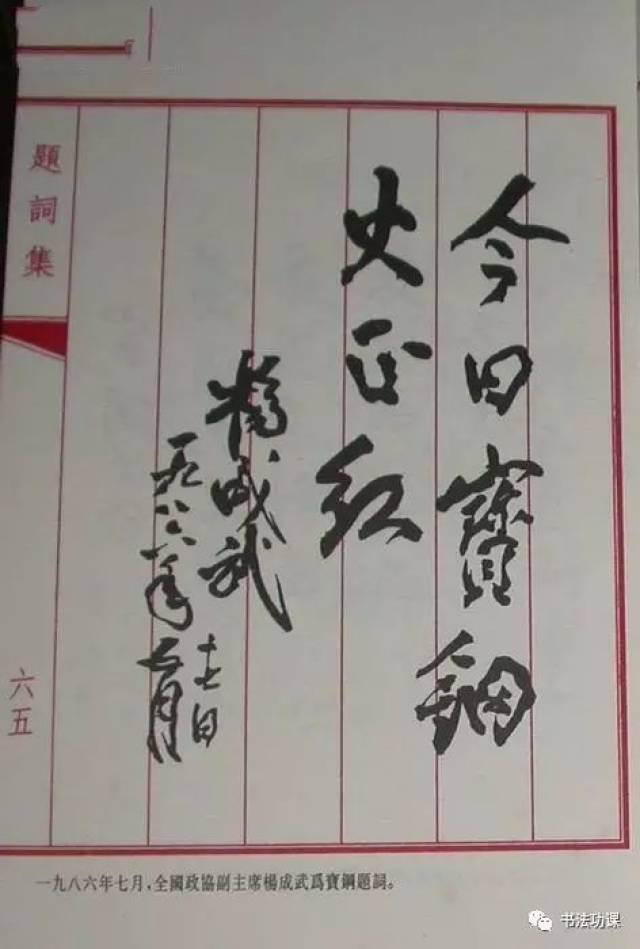 今日寶鋼
火正紅
楊成武
一九八六年七月
十七日
題詞集
六五
一九八六年七月，全國政協副主席楊成武爲寶鋼題詞。
书法功课